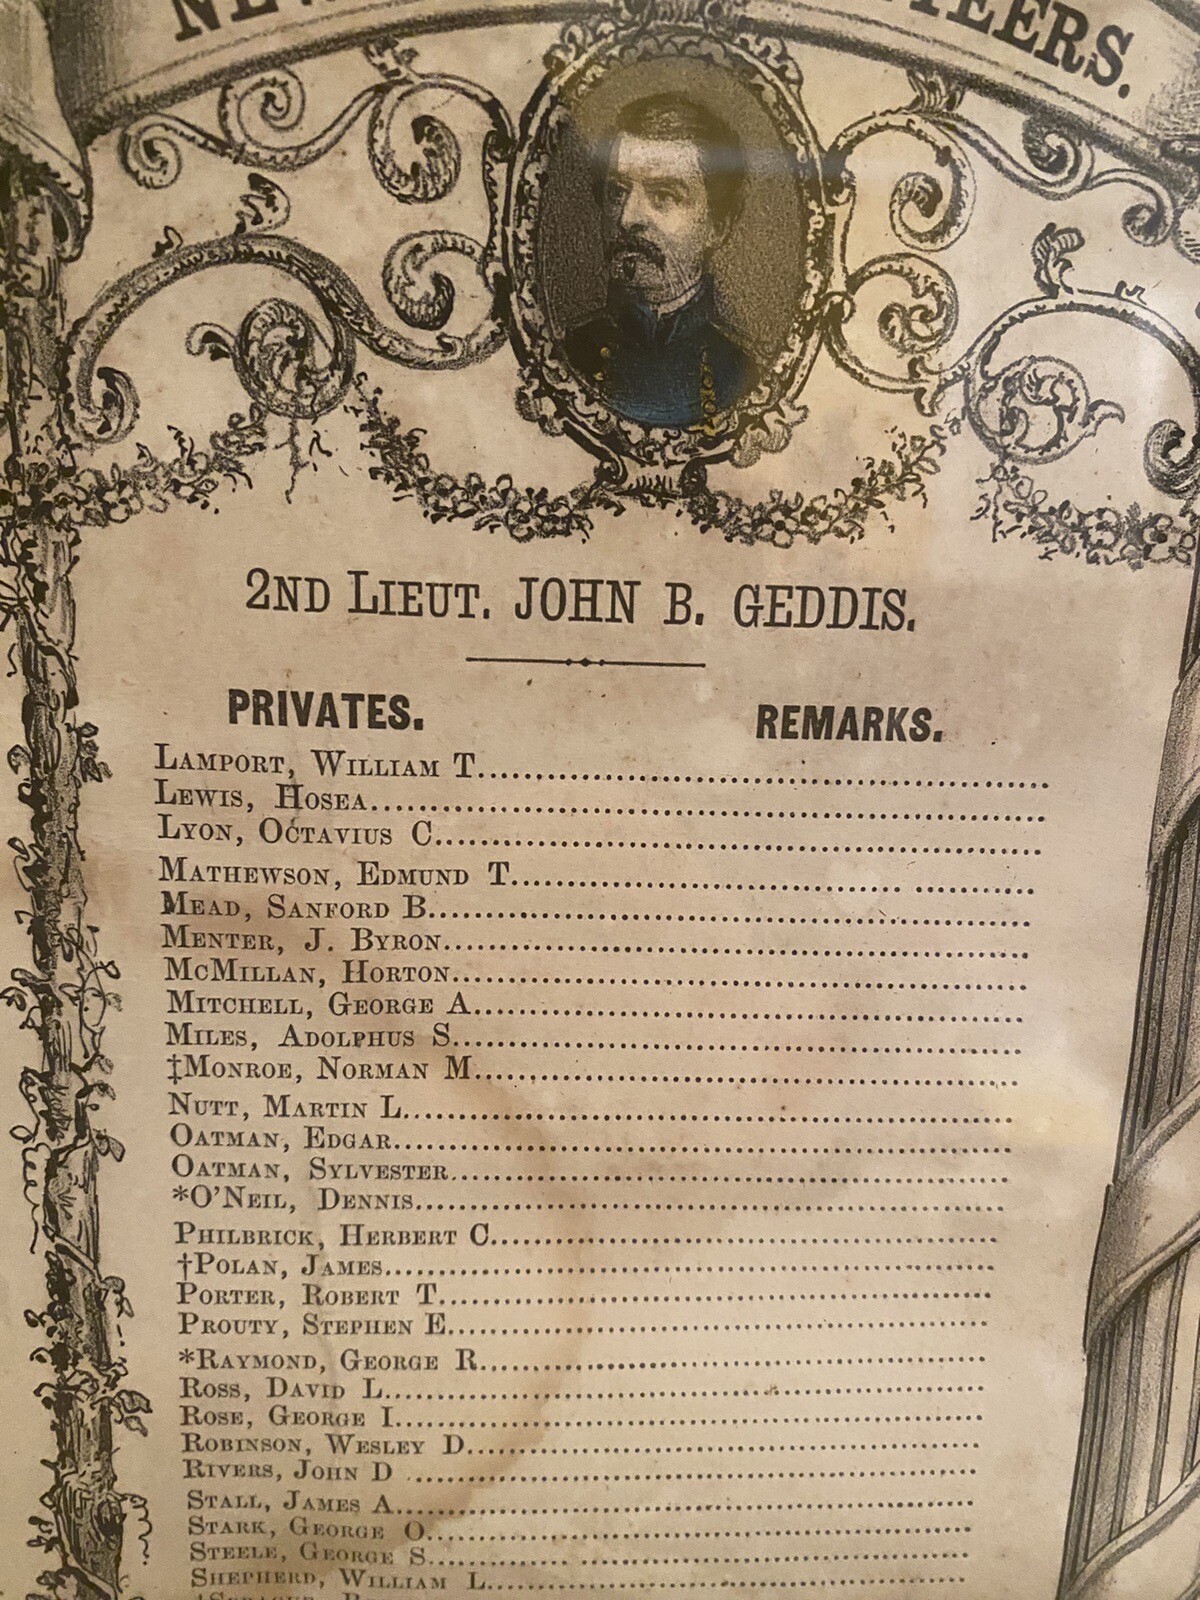 NEW
TEERS.
2ND LIEUT. JOHN B. GEDDIS.
PRIVATES. REMARKS.
LAMPORT, WILLIAM T.
LEWIS, HOSEA
LYON, OCTAVIUS C.
MATHEWSON, EDMUND T.
MEAD, SANFORD B.
MENTER, J. BYRON
MCMILLAN, HORTON
MITCHELL, GEORGE A.
MILES, ADOLPHUS S.
‡MONROE, NORMAN M.
NUTT, MARTIN L.
OATMAN, EDGAR
OATMAN, SYLVESTER
*O'NEIL, DENNIS
PHILBRICK, HERBERT C.
†POLAN, JAMES
PORTER, ROBERT T.
PROUTY, STEPHEN E.
*RAYMOND, GEORGE R.
ROSS, DAVID L.
ROSE, GEORGE I.
ROBINSON, WESLEY D.
RIVERS, JOHN D
STALL, JAMES A.
STARK, GEORGE O.
STEELE, GEORGE S.
SHEPHERD, WILLIAM L.